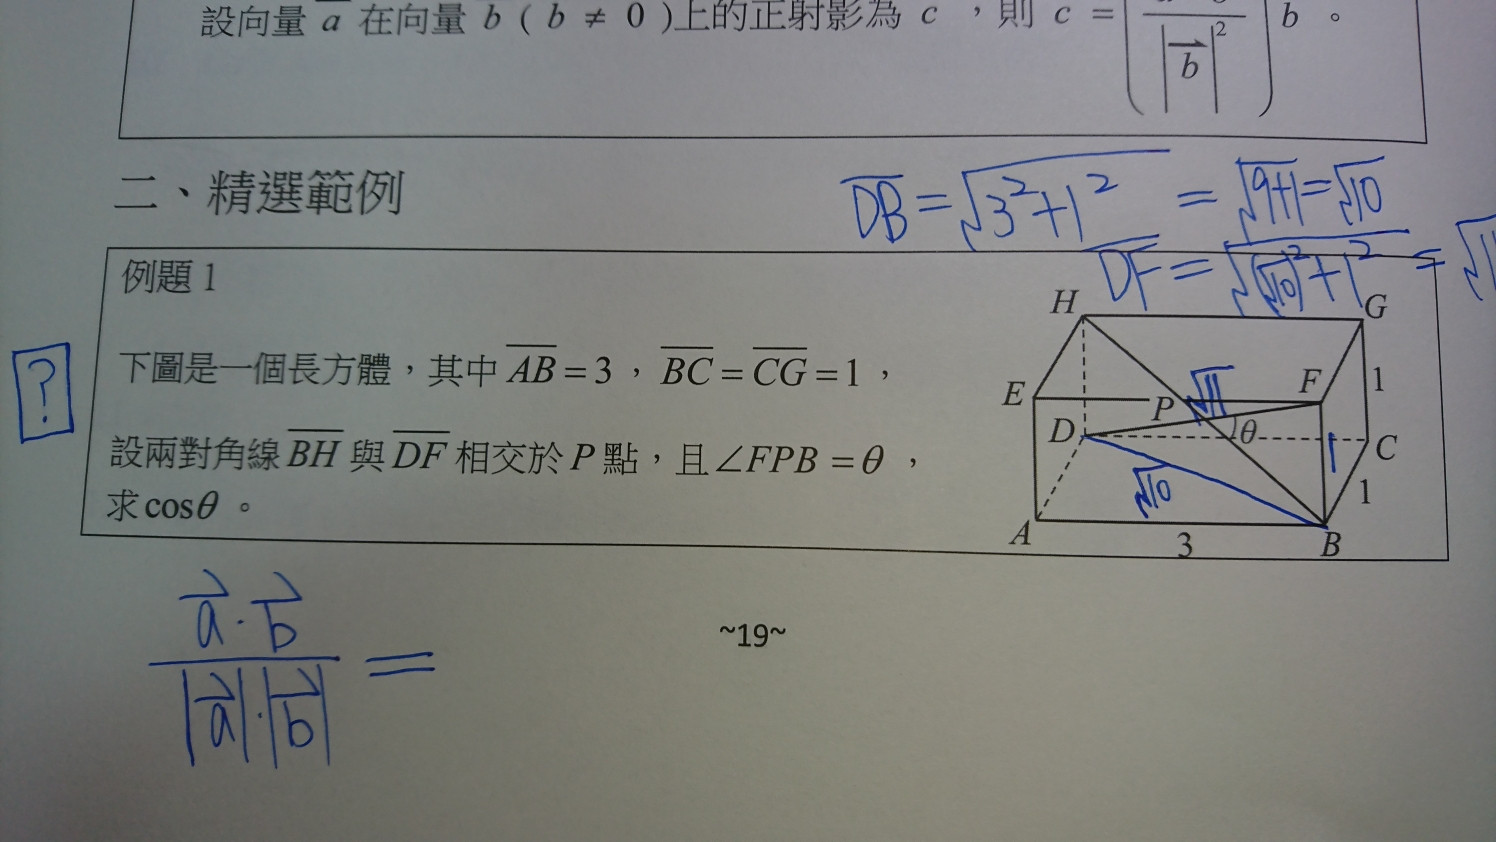 設向量 a 在向量 b ( b ≠ 0 )上的正射影為 c ，則 c = ( / |b|²) b 。
二、精選範例
DB = √3²+1² = √9+1 = √10
DF = √(√10)²+1² = √
例題 1
?
下圖是一個長方體，其中 AB = 3 ， BC = CG = 1 ，
設兩對角線 BH 與 DF 相交於 P 點，且∠FPB = θ ，
求 cosθ 。
H G
E P √11 F 1
D θ 1 C
√10 1
A 3 B
a · b
=
|a| · |b|
~19~